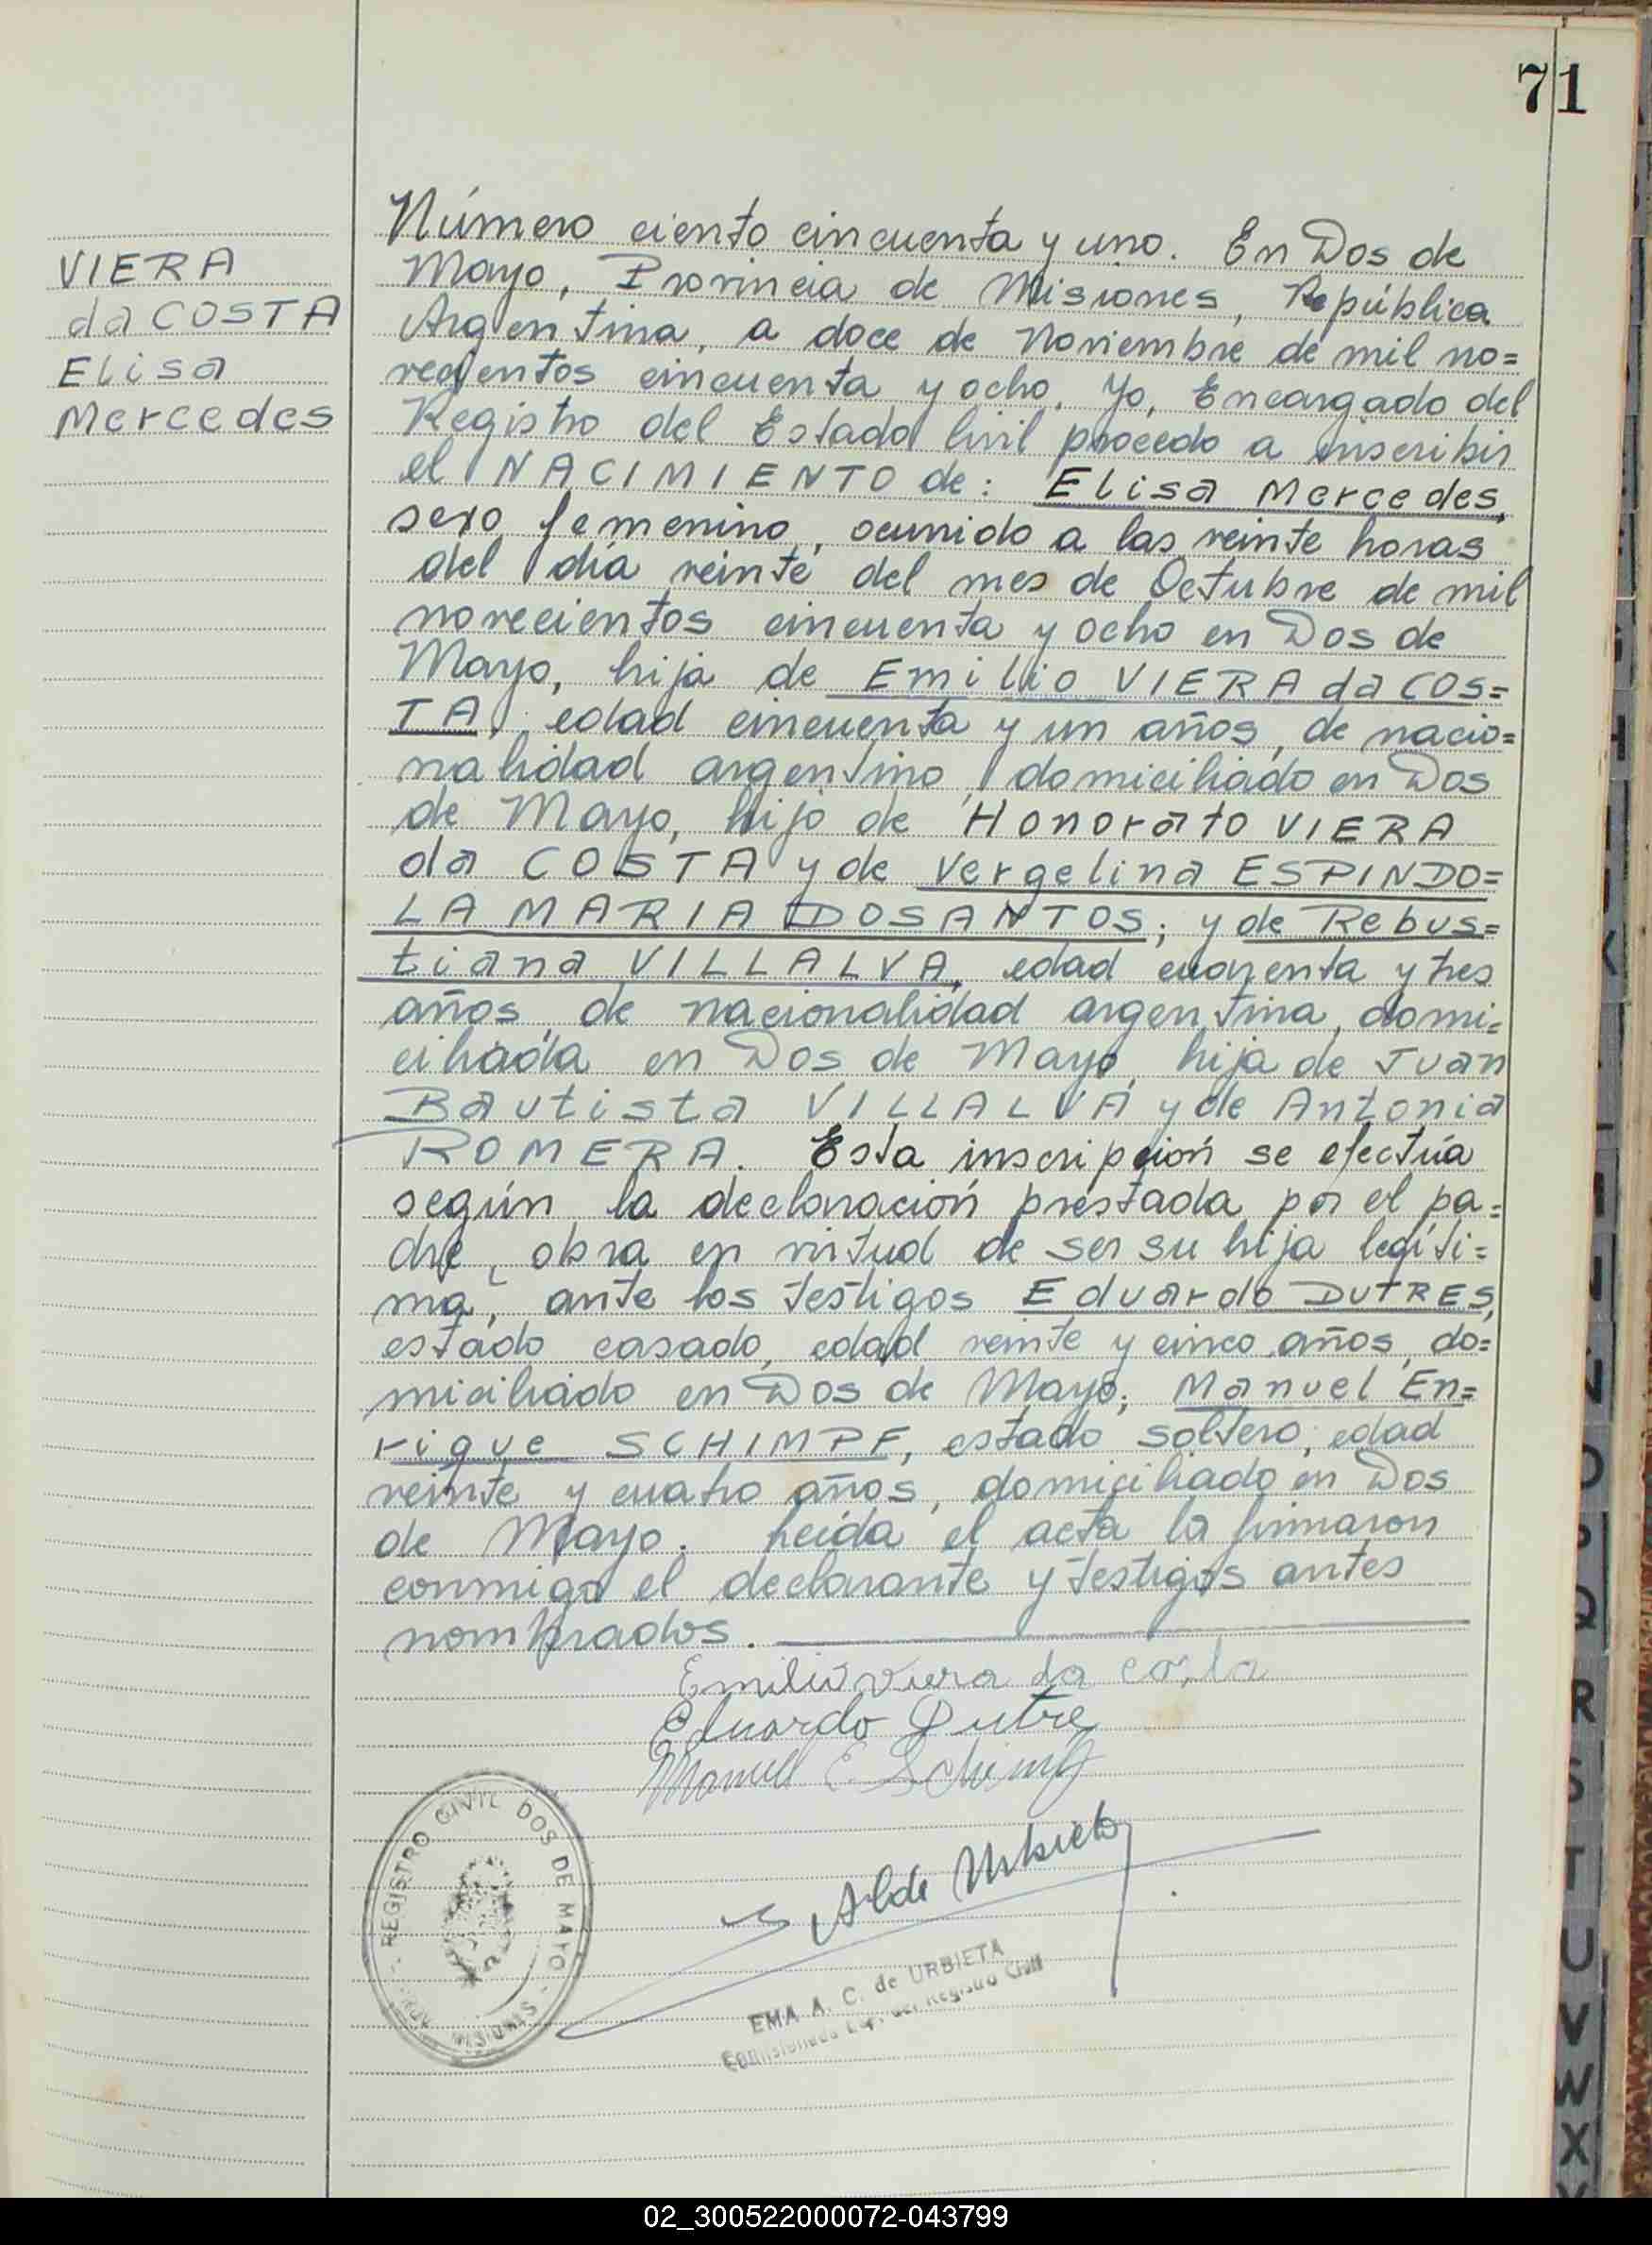 71
VIERA
da COSTA
Elisa
Mercedes
Número ciento cincuenta y uno. En Dos de
Mayo, Provincia de Misiones, República
Argentina, a doce de Noviembre de mil no=
vecientos cincuenta y ocho. Yo, Encargado del
Registro del Estado Civil procedo a inscribir
el NACIMIENTO de: Elisa Mercedes,
sexo femenino, ocurrido a las veinte horas
del día veinte del mes de Octubre de mil
novecientos cincuenta y ocho en Dos de
Mayo, hija de Emilio VIERA da COS=
TA, edad cincuenta y un años, de nacio=
nalidad argentino, domiciliado en Dos
de Mayo, hijo de Honorato VIERA
da COSTA y de Vergelina ESPINDO=
LA MARIA DOSANTOS; y de Rebus=
tiana VILLALVA, edad cuarenta y tres
años, de nacionalidad argentina, domi=
ciliada en Dos de Mayo, hija de Juan
Bautista VILLALVA y de Antonia
ROMERA. Esta inscripción se efectúa
según la declaración prestada por el pa=
dre, obra en virtud de ser su hija legíti=
ma, ante los testigos Eduardo DUTRES,
estado casado, edad veinte y cinco años, do=
miciliado en Dos de Mayo; Manuel En=
rique SCHIMPF, estado soltero, edad
veinte y cuatro años, domiciliado en Dos
de Mayo. Leída el acta la firmaron
conmigo el declarante y testigos antes
nombrados.
Emilio viera da costa
Eduardo Dutre
Manuel E. Schimpf
REGISTRO CIVIL DOS DE MAYO
MISIONES
Urbieta
EMA A. C. de URBIETA
del Registro Civil
02_300522000072-043799
B
H
I
K
N
O
P
Q
R
S
T
U
V
W
X